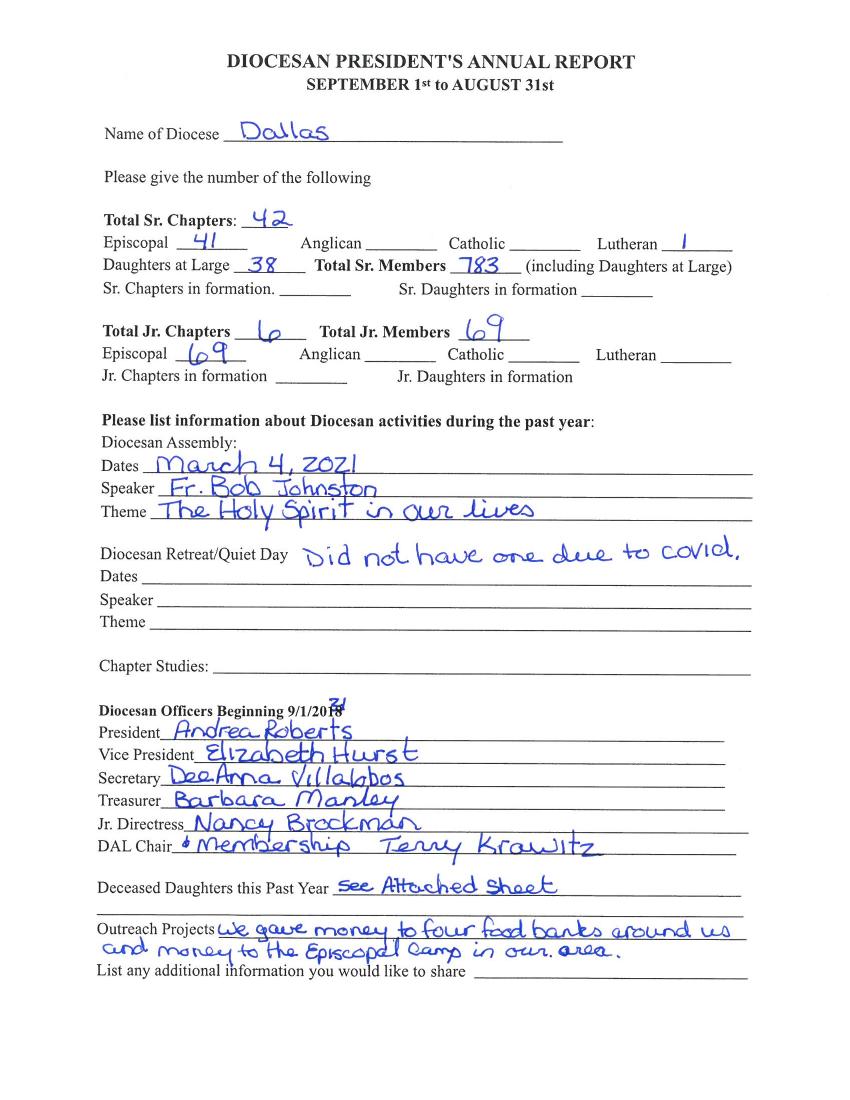 DIOCESAN PRESIDENT'S ANNUAL REPORT
SEPTEMBER 1st to AUGUST 31st
Name of Diocese Dallas
Please give the number of the following
Total Sr. Chapters: 42
Episcopal 41 Anglican Catholic Lutheran 1
Daughters at Large 38 Total Sr. Members 783 (including Daughters at Large)
Sr. Chapters in formation. Sr. Daughters in formation
Total Jr. Chapters 6 Total Jr. Members 69
Episcopal 69 Anglican Catholic Lutheran
Jr. Chapters in formation Jr. Daughters in formation
Please list information about Diocesan activities during the past year:
Diocesan Assembly:
Dates March 4, 2021
Speaker Fr. Bob Johnston
Theme The Holy Spirit in our lives
Diocesan Retreat/Quiet Day Did not have one due to covid.
Dates
Speaker
Theme
Chapter Studies:
Diocesan Officers Beginning 9/1/2021
President Andrea Roberts
Vice President Elizabeth Hurst
Secretary DeeAnna Villalobos
Treasurer Barbara Manley
Jr. Directress Nancy Brockman
DAL Chair & Membership Terry Krawitz
Deceased Daughters this Past Year see Attached Sheet
Outreach Projects we gave money to four food banks around us
and money to the Episcopal Camp in our area.
List any additional information you would like to share